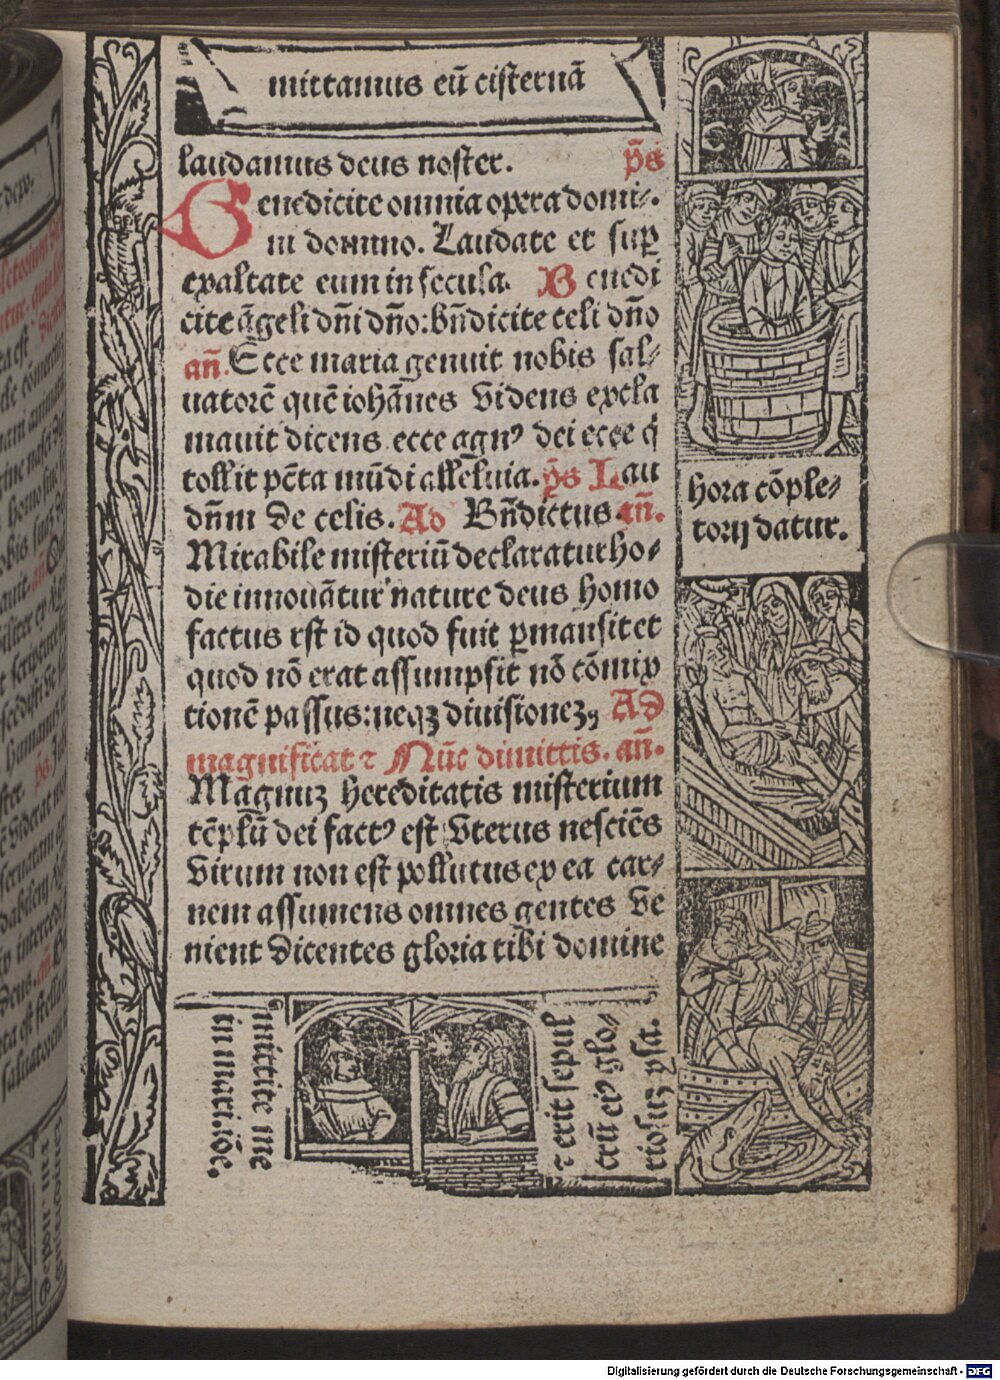 mittamus eū cisternā
laudamus deus noster. p̄s
Benedicite omnia opera domi-
ni domino. Laudate et sup
exaltate eum in secula. Benedi
cite āgeli dn̄i dn̄o: bn̄dicite celi dn̄o
an̄. Ecce maria genuit nobis sal-
uatorē quē iohānes videns excla
mauit dicens ecce agnꝰ dei ecce q̄
tollit pc̄ta mūdi allēluia. p̄s Lau
dn̄m de celis. Ad Bn̄dictus. an̄.
Mirabile misteriū declaratur ho-
die innouātur nature deus homo
factus est id quod fuit ꝑmansit et
quod nō erat assumpsit nō cōmix
tionē passus: neqꝫ diuisioneꝫ, Ad
magnificat ⁊ Nūc dimittis. an̄.
Magnuꝫ hereditatis misterium
tēplū dei factꝰ est vterus nesciēs
virum non est pollutus ex ea car-
nem assumens omnes gentes ve
nient dicentes gloria tibi domine
hora cōple-
torij datur.
mittite me
in mari. iōe.
⁊ erit sepul
crū eiꝰ glo-
riosuꝫ ysa.
Digitalisierung gefördert durch die Deutsche Forschungsgemeinschaft - DFG